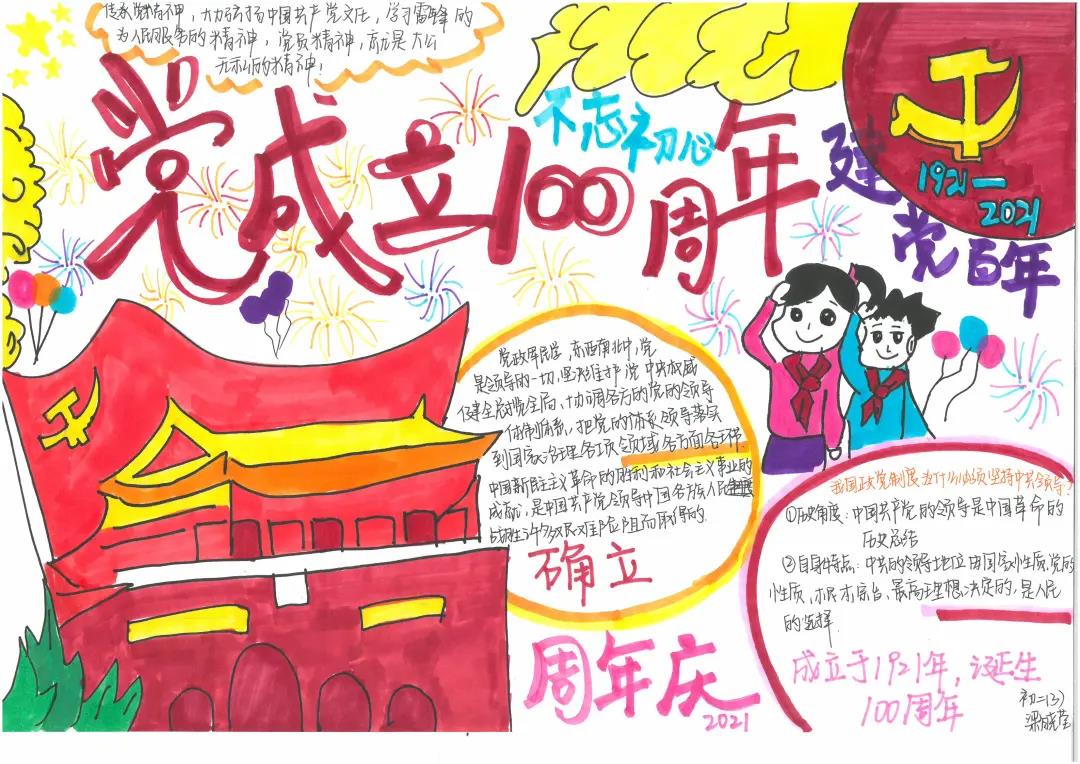 传承党精神，大力弘扬中国共产党文化，学习雷锋的
为人民服务的精神，党员精神，就是大公
无私的精神！
党成立100周年
不忘初心
建党百年
1921—
2021
党政军民学，东西南北中，党
是领导的一切，坚决维护党中央权威
健全总揽全局，协调各方的党的领导
体制体系，把党的体系领导落实
到国家治理各项领域各方面各环节.
中国新民主主义革命的胜利和社会主义事业的
成就，是中国共产党领导中国各族人民
战胜许多艰难险阻而取得的.
确立
周年庆
2021
我国政党制度为什么必须坚持中共领导？
①历史角度：中国共产党的领导是中国革命的
历史总结
②自身特点：中共的领导地位由国家性质，党的
性质，根本宗旨，最高理想决定的，是人民
的选择.
成立于1921年，诞生
100周年
初二(3)
梁晓莹